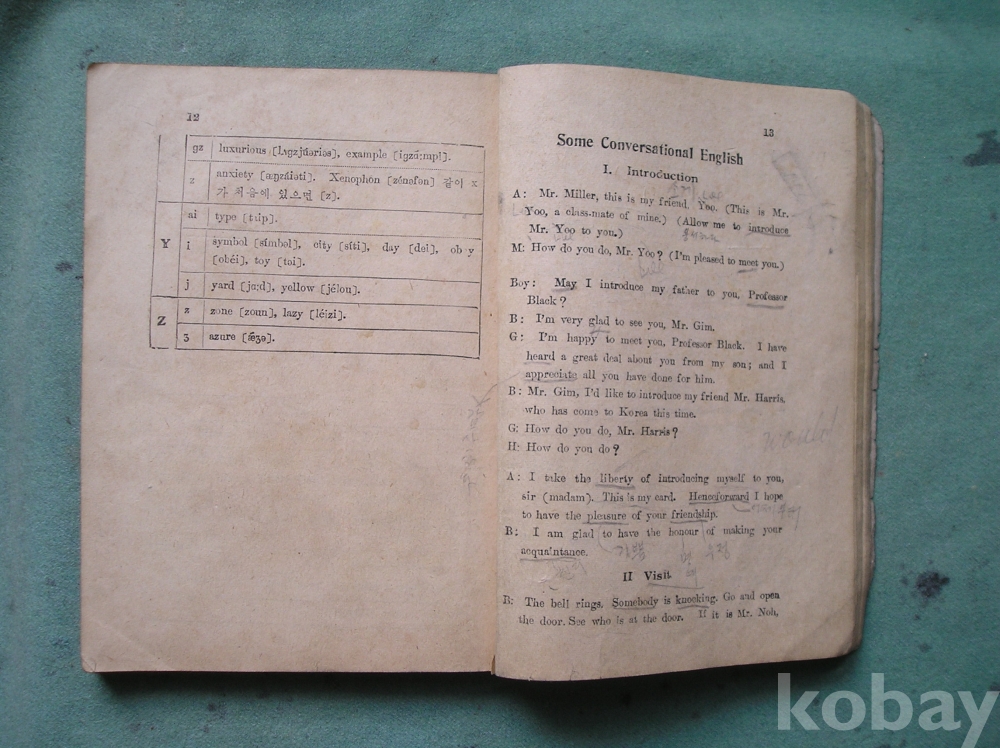 12
gz luxurious [lʌgzjúəriəs], example [igzɑ́:mpl].
z anxiety [æŋzáiəti]. Xenophon [zénəfən] 같이 x
가 처음에 있으면 [z].
Y
ai type [taip].
i symbol [símbəl], city [síti], day [dei], obey
[obéi], toy [tɔi].
j yard [jɑ:d], yellow [jélou].
Z
z zone [zoun], lazy [léizi].
ʒ azure [ǽʒə].
13
Some Conversational English
I. Introduction
A: Mr. Miller, this is my friend, Yoo. (This is Mr.
Yoo, a class-mate of mine.) (Allow me to introduce
Mr. Yoo to you.)
M: How do you do, Mr. Yoo? (I'm pleased to meet you.)
Boy: May I introduce my father to you, Professor
Black?
B: I'm very glad to see you, Mr. Gim.
G: I'm happy to meet you, Professor Black. I have
heard a great deal about you from my son; and I
appreciate all you have done for him.
B: Mr. Gim, I'd like to introduce my friend Mr. Harris,
who has come to Korea this time.
G: How do you do, Mr. Harris?
H: How do you do?
A: I take the liberty of introducing myself to you,
sir (madam). This is my card. Henceforward I hope
to have the pleasure of your friendship.
B: I am glad to have the honour of making your
acquaintance.
기쁨
II Visit
B: The bell rings. Somebody is knocking. Go and open
the door. See who is at the door. If it is Mr. Noh,
kobay